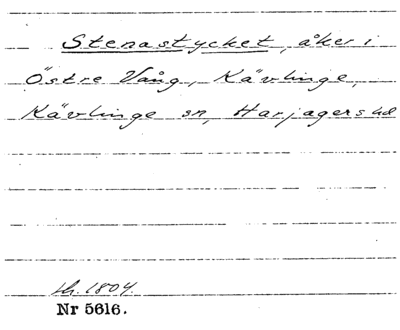 Stenastycket, åker i
Östre Vång, Kävlinge,
Kävlinge sn, Harjagers hd
1804.
Nr 5616.